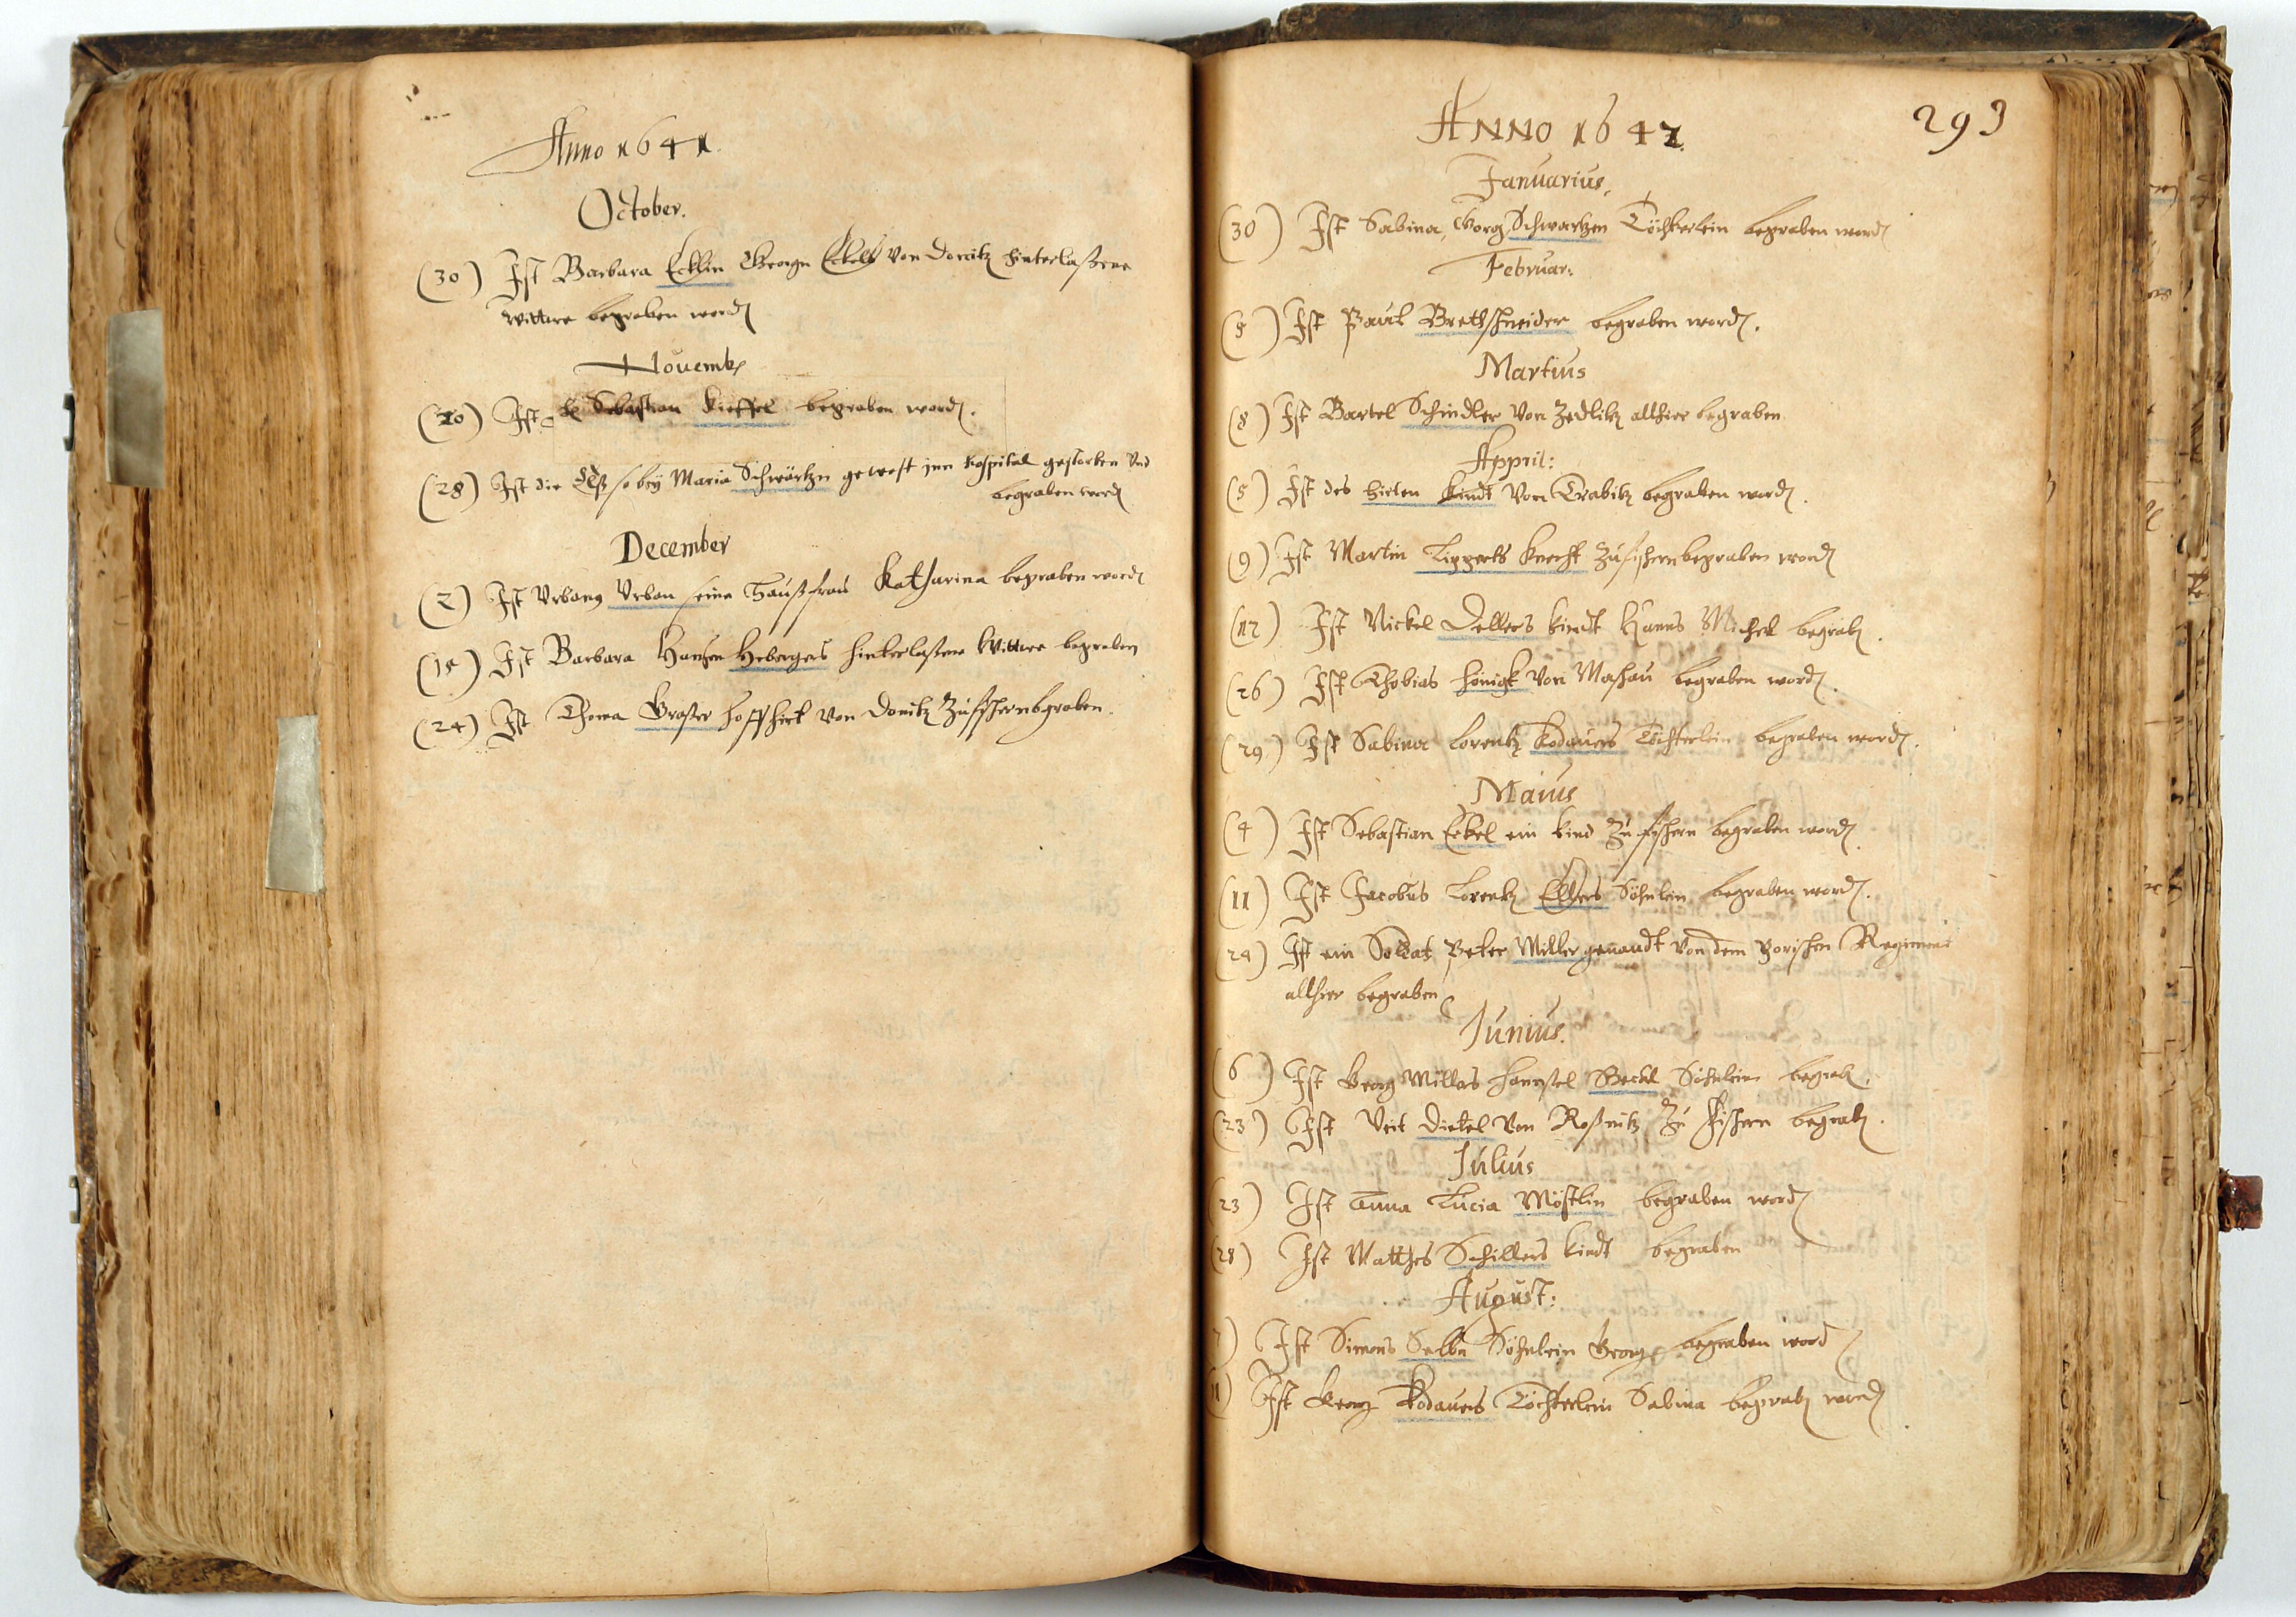 Anno 1641.
October.
(30) Ist Barbara Ecklin Georgn Eckels von Donitz hinterlaßene
Wittwe begraben word
Novemb
(20) Ist Sebastian Kieffel begraben word.
(28) Ist die so bey Maria Schwärtzin gewest jnn Hospital gestorben vnd
begraben word
December
(2) Ist Vrbang Vrban seine Haußfrau Katharina begraben word
(15) Ist Barbara Hansen hinterlaßene Wittwe begraben
(24) Ist Thoma Graßer Hoffhirt von Donitz Zu fischernbgraben.
293
ANNO 1642.
Januarius,
(30) Ist Sabina, Gorg Schwartzen Töchterlein begraben word
Februar:
(5) Ist Paul Brethschneider begraben word.
Martius
(8) Ist Bartel Schindler von Zedlitz allhier begraben
Appril:
(5) Ist des hirten Kindt von Trabitz begraben word.
(9) Ist Martin Lipperts Knecht Zu fischernbegraben word
(12) Ist Nickel Dellers Kindt Hanns Michel begrab.
(26) Ist Thobias Hönigk von Maschau begraben word.
(29) Ist Sabina Lorentz Kodauers Töchterlein begraben word.
Maius
(4) Ist Sebastian Eckel ein Kind Zu fischern begraben word.
(11) Ist Jacobus Lorentz Söhnlein begraben word.
Ist ein Soldat Peter Miller genandt von dem Regiment
allhier begraben
Junius.
(6) Ist Georg Millers Söhnlein begrab.
(23) Ist Veit Dietel von Roßnitz Zu fischern begrab.
Julius
(23) Ist Anna Lucia Möstlin begraben word
(28) Ist Matthes Schillers Kindt begraben
August:
Ist Simons Selbn Söhnlein Georg begraben word
Ist Georg Kodauers Töchterlein Sabina begrab word